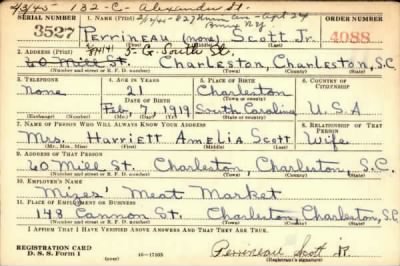 4/3/45- 132-C- Alexander St.
2/2/45-827 Ave - Apt 24
Bronx N.Y.
SERIAL NUMBER 1. NAME (Print) ORDER NUMBER
3527 PERRINEAU (none) Scott Jr. 4088
(First) (Middle) (Last)
2. ADDRESS (Print) 5-G- South St.
60 Mill St. Charleston, Charleston, S.C
(Number and street or R. F. D. number) (Town) (County) (State)
3. TELEPHONE 4. AGE IN YEARS 5. PLACE OF BIRTH 6. COUNTRY OF CITIZENSHIP
None 21 Charleston
DATE OF BIRTH (Town or county)
Feb, 7, 1919 South Carolina U.S.A
(Exchange) (Number) (Mo.) (Day) (Yr.) (State or country)
7. NAME OF PERSON WHO WILL ALWAYS KNOW YOUR ADDRESS 8. RELATIONSHIP OF THAT PERSON
Mrs. Harriett Amelia Scott Wife
(Mr., Mrs., Miss) (First) (Middle) (Last)
9. ADDRESS OF THAT PERSON
60 Mill St. Charleston, Charleston, S.C.
(Number and street or R. F. D. number) (Town) (County) (State)
10. EMPLOYER'S NAME
Mizes' Meat Market
11. PLACE OF EMPLOYMENT OR BUSINESS
148 Cannon St. Charleston, Charleston, S.C
(Number and street or R. F. D. number) (Town) (County) (State)
I AFFIRM THAT I HAVE VERIFIED ABOVE ANSWERS AND THAT THEY ARE TRUE.
REGISTRATION CARD
D. S. S. Form 1 16-17105 Perrineau Scott Jr.
(Registrant's signature)